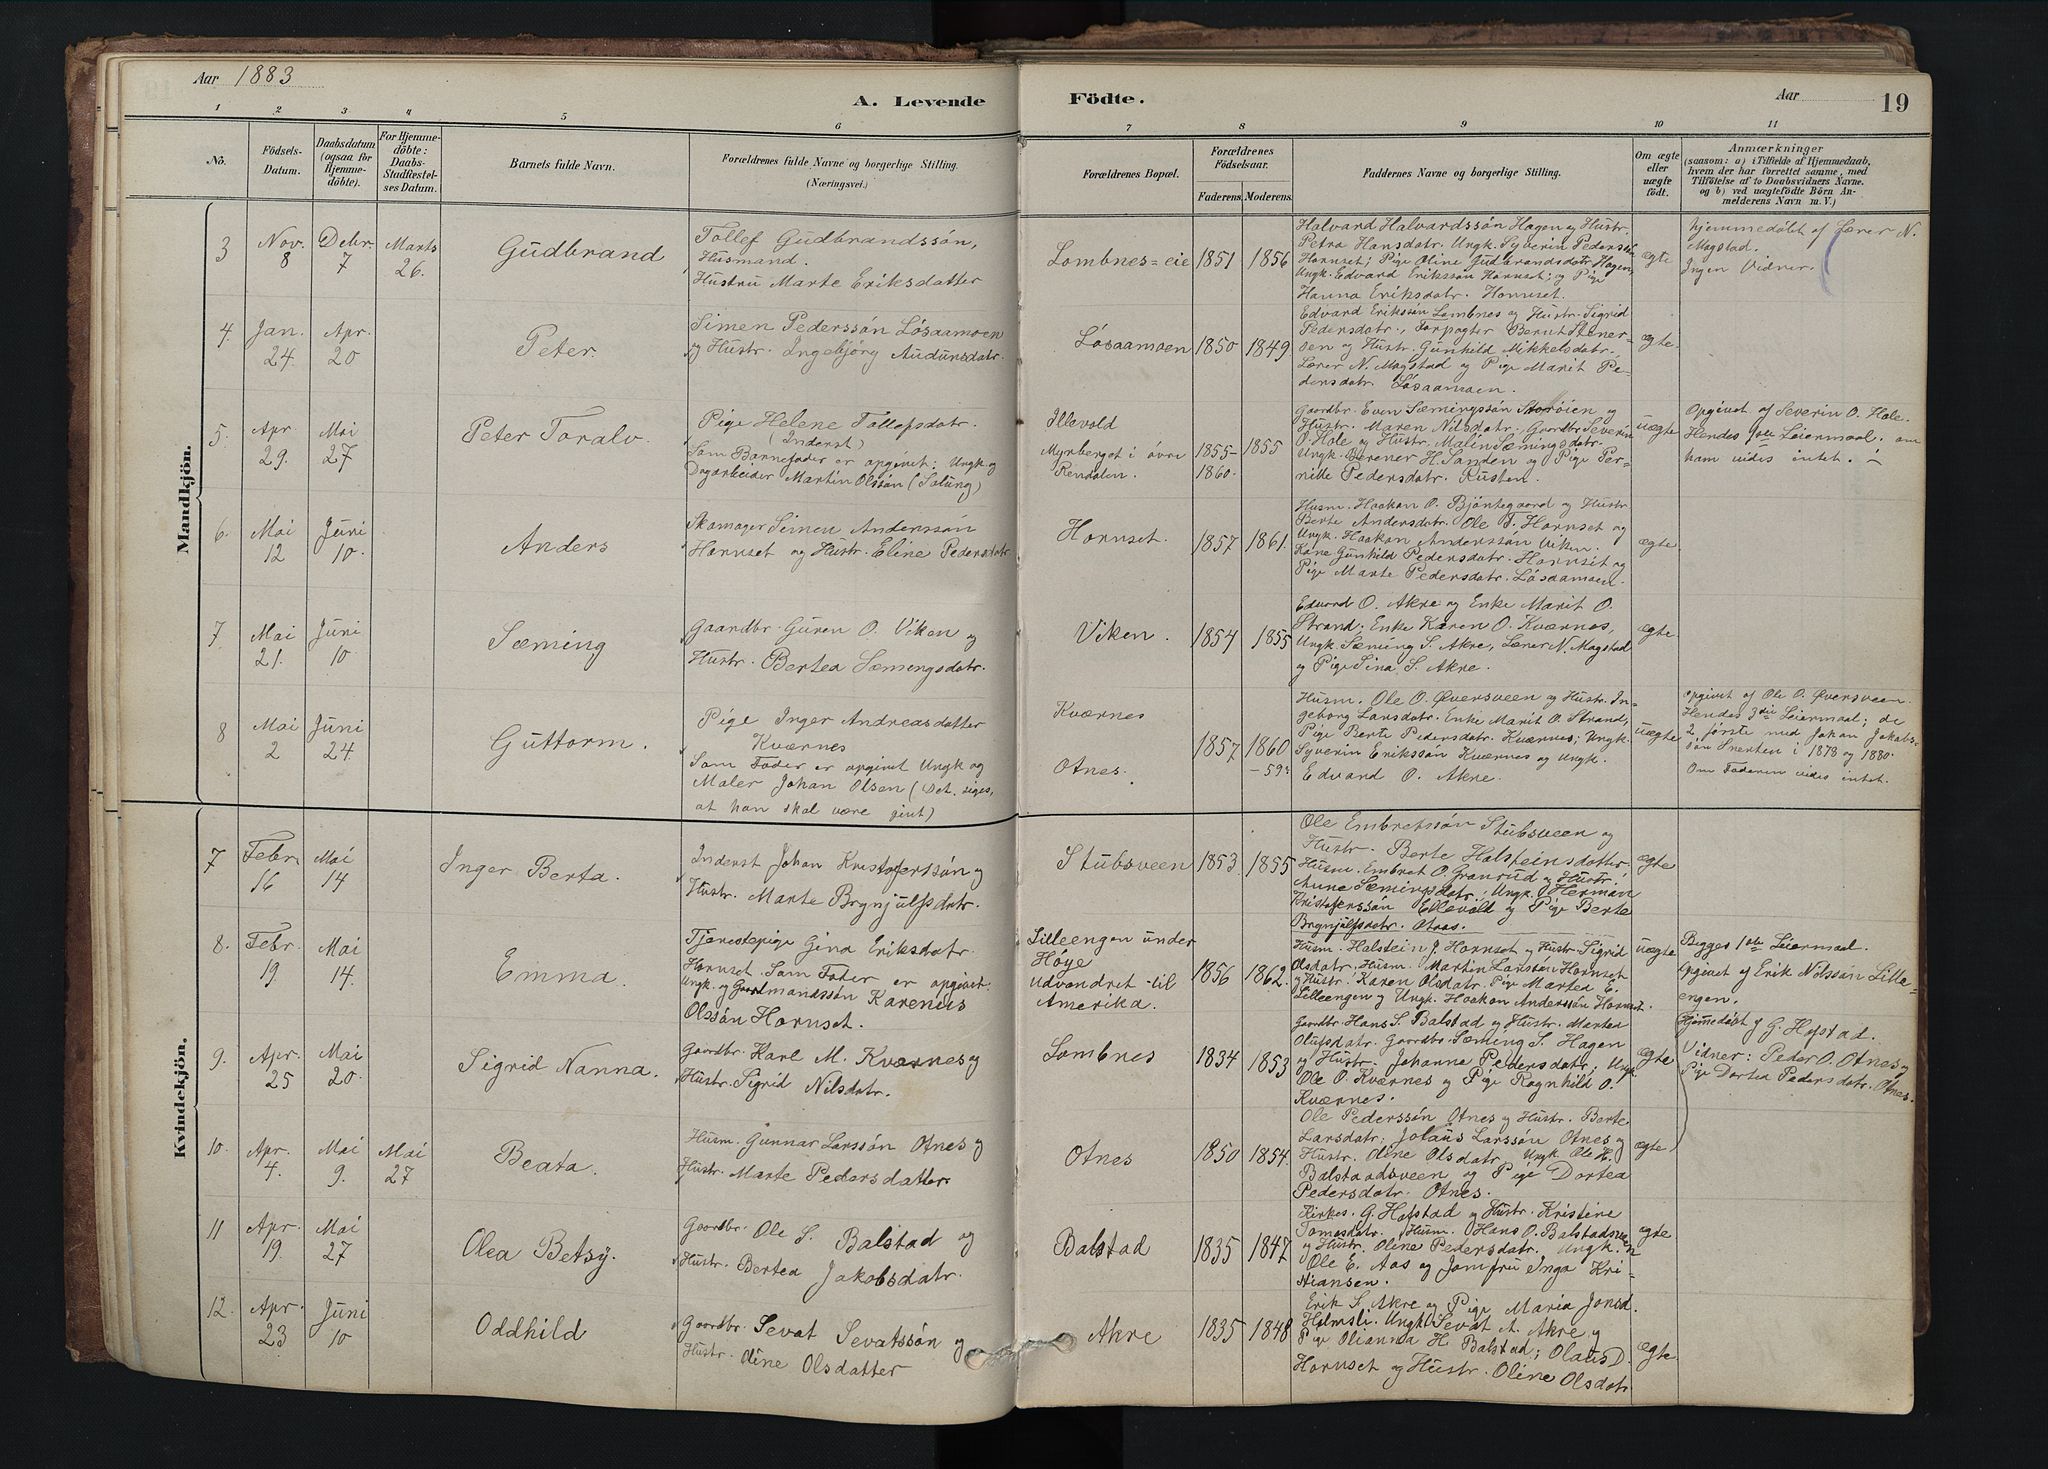 Aar 1883
A. Levende
Födte.
Aar
19
1 2 3 4 5 6 7 8 9 10 11
No.
Födsels-
Datum.
Daabsdatum
(ogsaa for
Hjemme-
döbte).
For Hjemme-
döbte:
Daabs-
Stadfæstel-
ses Datum.
Barnets fulde Navn.
Forældrenes fulde Navne og borgerlige Stilling.
(Næringsvei.)
Forældrenes Bopæl.
Forældrenes
Födselsaar.
Faderens. Moderens.
Faddernes Navne og borgerlige Stilling.
Om ægte
eller
uægte
født.
Anmærkninger
(saasom: a) i Tilfælde af Hjemmedaab,
hvem der har forrettet samme, med
Tilföielse af to Daabsvidners Navne,
og b) ved uægtefödte Börn An-
melderens Navn m. V.)
Mandkjön.
3
Nov.
8
Debr.
7
Marts
26.
Gudbrand
Tollef Gudbrandssön,
Husmand.
Hustru Marte Eriksdatter
Lombnes=eie
1851
1856
Halvard Halvardssön Hagen og Hustr.
Petra Hansdatr. Ungk. Syverin Pederssön
Hornset; Pige Oline Gudbrandsdatr. Hagen,
Ungk. Edvard Erikssön Hornset; og Pige
Hanna Eriksdatr. Hornset.
ægte
Hjemmedöbt af Lærer N.
Magstad.
Ingen Vidner.
4.
Jan.
24.
Apr.
20
Peter.
Simen Pederssön Lösaamoen
og Hustr. Ingebjörg Audunsdatr.
Lösaamoen
1850
1849
Edvard Erikssön Lombnes og Hustr. Sigrid
Pedersdatr., Forpagter Bernt Stener-
sen og Hustr. Gunhild Mikkelsdatr.,
Lærer N. Magstad og Pige Marit Pe-
dersdatr. Lösaamoen.
ægte
5.
Apr.
29.
Mai
27
Peter Toralv.
Pige Helene Tollefsdatr.
(Inderst)
Som Barnefader er opgivet: Ungk. og
Dagarbeider Martin Olssön (Solung)
Illevold
Myrberget i övre
Rendalen.
1855-
1860.
1855
Gaardbr. Even Sæmingssön Storöien og
Hustr. Maren Nilsdatr. Gaardbr. Severin
O. Hole og Hustr. Malin Sæmingsdatr.
Ungk. Berener H. Sanden og Pige Per-
nille Pedersdatr. Rusten.
uægte
Opgivet af Severin O. Hole.
Hendes 1ste Leiermaal. om
ham vides intet.
6.
Mai
12
Juni
10.
Anders
Skomager Simen Anderssön
Hornset og Hustr. Eline Pedersdatr.
Hornset.
1857
1861.
Husm. Haakon O. Bjöntegaard og Hustr.
Berte Andersdatr. Ole T. Hornset og
Ungk. Haakon Anderssön Viken.
Kone Gunhild Pedersdatr. Hornset og
Pige Marte Pedersdatr. Lösaamoen.
ægte
7
Mai
21.
Juni
10.
Sæming
Gaardbr. Guren O. Viken og
Hustr. Bertea Sæmingsdatr.
Viken.
1854
1855
Edvard O. Akre og Enke Marit O.
Strand; Enke Karen O. Kværnes,
Ungk. Sæming S. Akre, Lærer N. Magstad
og Pige Sina S. Akre.
ægte
8
Mai
2
Juni
24.
Guttorm.
Pige Inger Andreasdatter
Kværnes
Som Fader er opgivet Ungk. og
Maler Johan Olsen (Det siges,
at han skal være givt)
Kværnes
Otnes.
1857
1860
-59.
Husm. Ole O. Översveen og Hustr. In-
geborg Larsdatr. Enke Marit O. Strand,
Pige Berte Pedersdatr. Kværnes; Ungk.
Syverin Erikssön Kværnes og Ungk.
Edvard O. Akre.
uægte
Opgivet af Ole O. Översveen.
Hendes 3die Leiermaal; de
2 förste med Johan Jakobs-
sön Snerten i 1878 og 1880.
Om Faderen vides intet.
Kvindekjön.
7
Febr.
16
Mai
14
Inger Berta.
Inderst Johan Kristoferssön og
Hustr. Marte Brynjulfsdatr.
Stubsveen
1853
1855
Ole Embretssön Stubsveen og
Hustr. Berte Halsteinsdatter.
Husm. Embret O. Granrud og Hustr.
Anne Sæmingsdatr., Ungk. Herman
Kristoferssön Ellevold og Pige Berte
Brynjulfsdatr. Otnes.
ægte
8.
Febr.
19
Mai
14.
Emma.
Tjenestepige Gina Eriksdatr.
Hornset. Som Fader er opgivet:
Ungk. og Gaardmandssön Karenius
Olssön Hornset.
Lilleengen under
Höye
udvandret til
Amerika.
1856
1862.
Husm. Halstein J. Hornset og Hustr. Sigrid
Olsdatr., Husm. Martin Larssön Hornset
og Hustr. Karen Olsdatr. Pige Martea E.
Lilleengen og Ungk. Haakon Anderssön Hornset.
uægte
Begges 1ste Leiermaal.
Opgivet af Erik Nilssön Lille-
engen.
9.
Apr.
25
Mai
20.
Sigrid Nanna.
Gaardbr. Karl M. Kværnes og
Hustr. Sigrid Nilsdatr.
Lombnes
1834
1853
Gaardbr. Hans S. Balstad og Hustr. Martea
Olufsdatr. Gaardbr. Sæming S. Hagen
og Hustr. Johanne Pedersdatr; Ungk.
Ole O. Kværnes og Pige Ragnhild O.
Kværnes.
ægte
Hjemmedöbt af G. Hofstad.
Vidner: Peder O. Otnes og
Pige Dortea Pedersdatr. Otnes.
10.
Apr.
4.
Mai
9.
Mai
27
Beata.
Husm. Gunnar Larssön Otnes og
Hustr. Marte Pedersdatter
Otnes
1850
1854.
Ole Pederssön Otnes og Hustr. Berte
Larsdatr; Jolaus Larssön Otnes og
Hustr. Oline Olsdatr. Ungk. Ole H.
Balstadsveen og Pige Dortea
Pedersdatr. Otnes.
ægte
11
Apr.
19.
Mai
27
Olea Betsy.
Gaardbr. Ole S. Balstad og
Hustr. Bertea Jakobsdatr.
Balstad
1835
1847
Kirkes. G. Hofstad og Hustr. Kristine
Tomesdatr. Husm. Hans O. Balstadsveen
og Hustr. Oline Pedersdatr. Ungk.
Ole E. Aas og Jomfru Inga Kri-
stiansen.
ægte
12.
Apr.
23
Juni
10
Oddhild
Gaardbr. Sevat Sevatssön og
Hustr. Oline Olsdatter
Akre
1835
1848
Erik S. Akre og Pige Maria Jonsd.
Holmsli. Ungk. Sevat A. Akre og
Pige Olianna H. Balstad; Olaus D.
Hornset og Hustr. Oline Olsdatr.
ægte